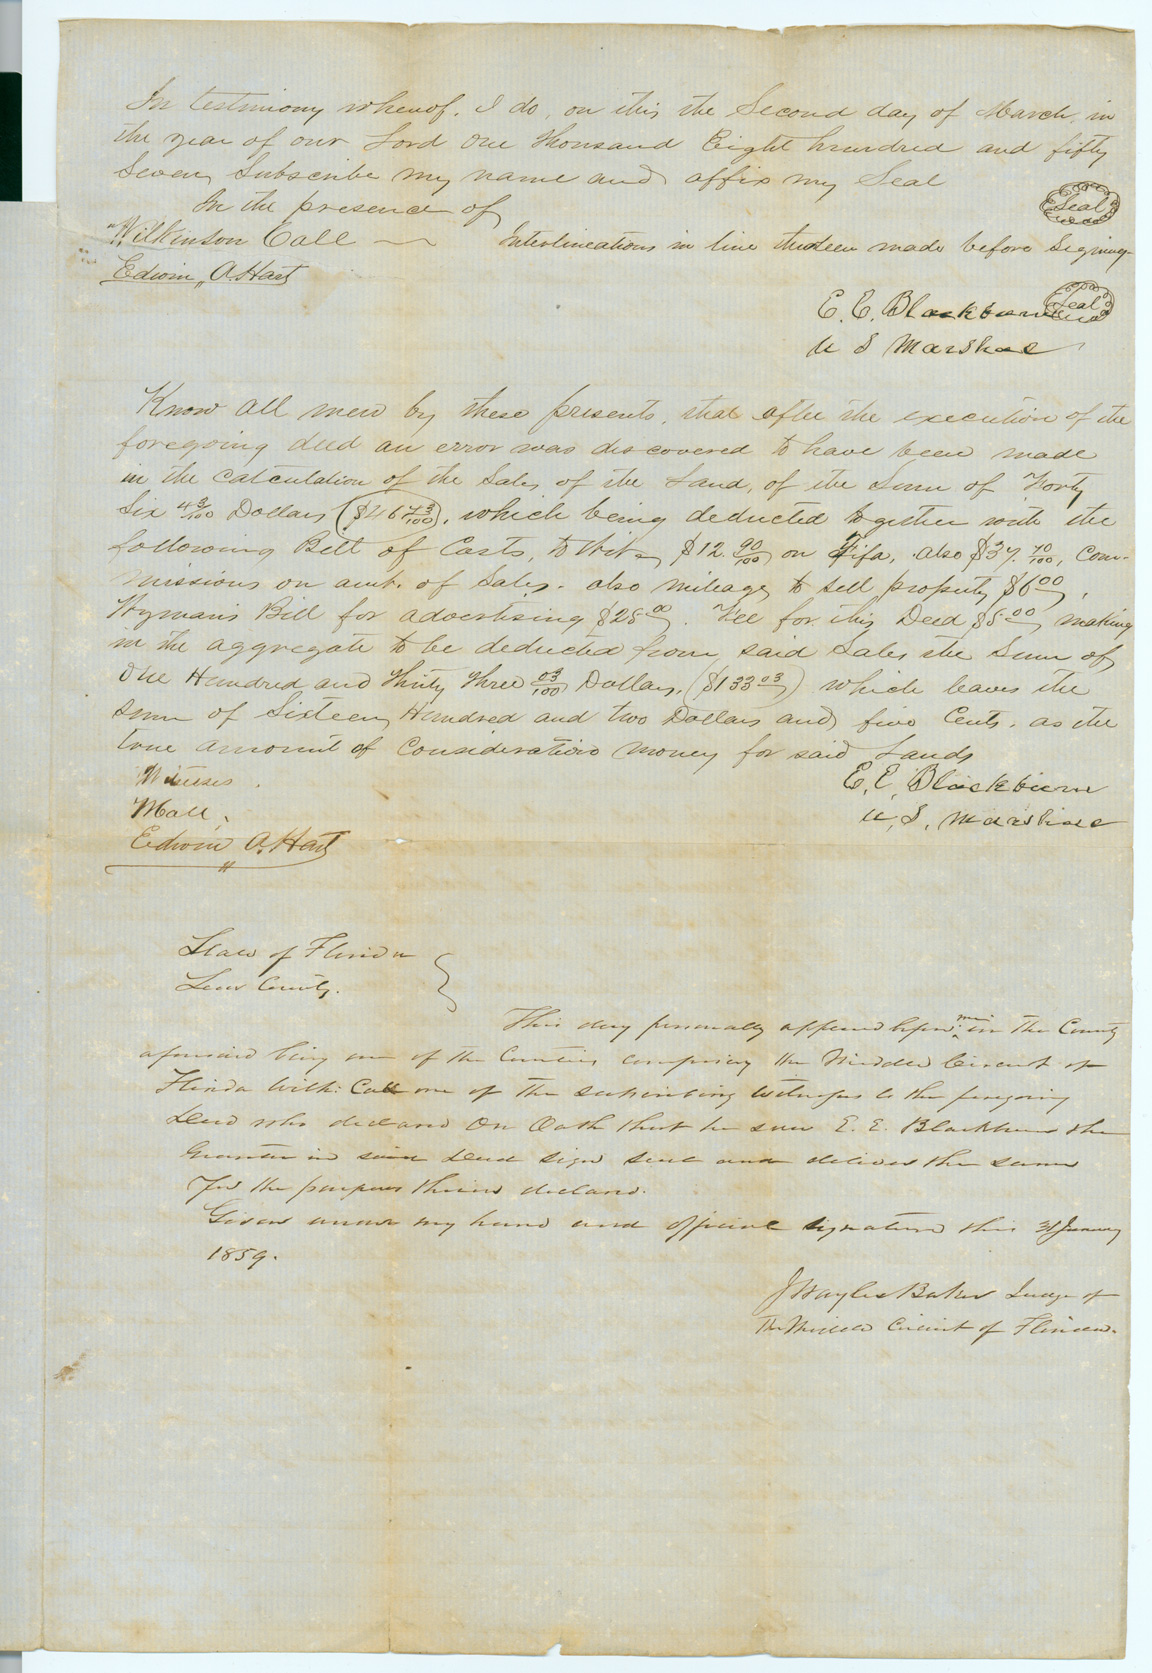 In testimony whereof, I do, on this the Second day of March, in
the year of our Lord One thousand Eight hundred and fifty
Seven, Subscribe my name and affix my Seal
In the presence of
Seal
Wilkinson Call
Interlineations in line thirteen made before Signing
Edwin A. Hart
E. E. Blackburn Seal
U S Marshal
Know all men by these presents, that after the execution of the
foregoing deed an error was discovered to have been made
in the calculation of the Sales of the Land, of the Sum of Forty
Six 43/100 Dollars ($46 43/100), which being deducted together with the
following Bill of Costs, to Wit $12. 90/100 on Fifa, also $34. 70/100, Com-
missions on amt. of Sales. also mileage to sell property $6 00,
Wyman's Bill for advertising $28 00. Fee for this Deed $5 00 making
in the aggregate to be deducted from said Sales the Sum of
One Hundred and Thirty Three 03/100 Dollars, ($133 03) which leaves the
sum of Sixteen Hundred and two Dollars and five Cents, as the
true amount of Consideration money for said Lands
Witnesses.
E. E. Blackburn
U. S. Marshal
Edwin A. Hart
State of Florida
Leon County.
This day personally appeared before me in the County
aforesaid being one of the Counties composing the Middle Circuit of
Florida Wilk: Call one of the subscribing witnesses to the foregoing
Deed who declared on Oath that he saw E. E. Blackburn the
Grantor in said Deed sign seal and deliver the same
for the purposes therein declared.
Given under my hand and official signature this 31 January
1859.
J Wayles Baker Judge of
The Middle Circuit of Florida.